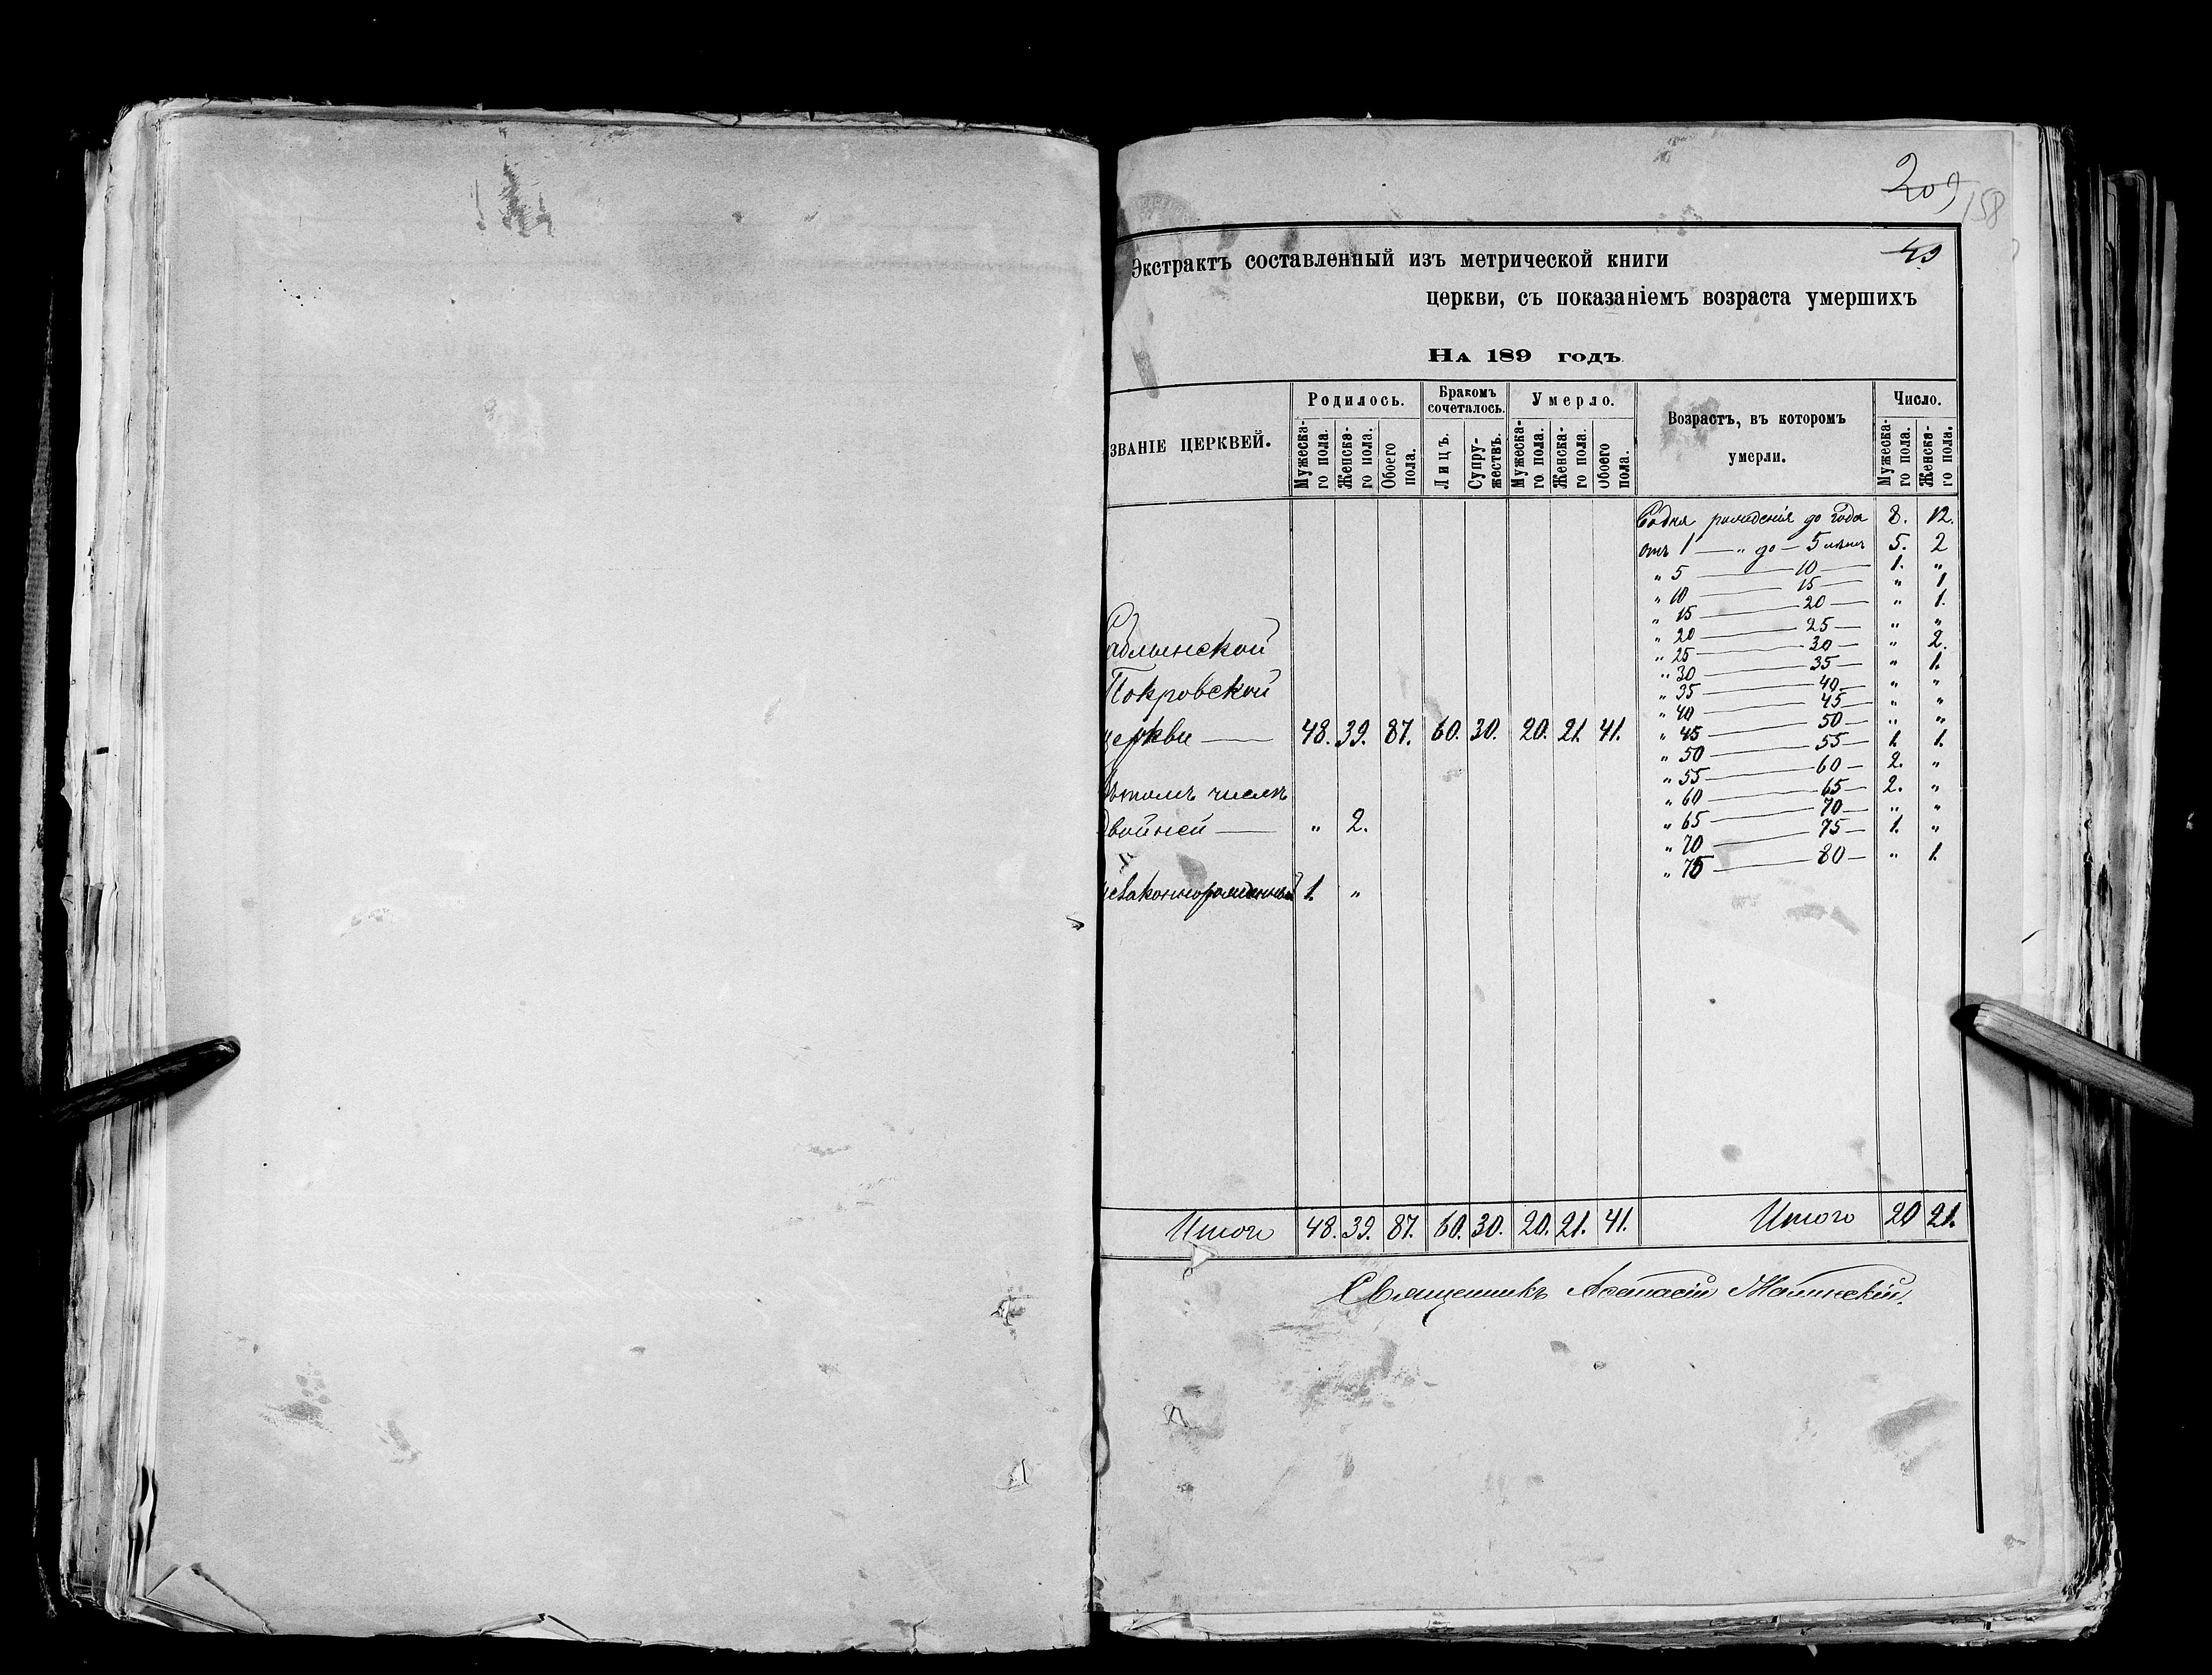 209
158
49
Экстрактъ составленный изъ метрической книги
церкви, съ показаніемъ возраста умершихъ
На 189 годъ
званіе церквей.
Родилось.
Бракомъ сочеталось.
Умерло.
Возрастъ, въ которомъ умерли.
Число.
Мужеска-го пола.
Женска-го пола.
Обоего пола.
Лицъ.
Супру-жествъ.
Мужеска-го пола.
Женска-го пола.
Обоего пола.
Мужеска-го пола.
Женска-го пола.
Со дня рожденія до года 8. 12.
отъ 1 — „ до — 5 лѣтъ 5. 2
„ 5 — 10 — 1. „
„ 10 — 15 — „ 1
„ 15 — 20 — „ 1.
„ 20 — 25 — „ „
„ 25 — 30 — „ 2.
„ 30 — 35 — „ 1.
„ 35 — 40 — „ „
„ 40 — 45 — „ „
„ 45 — 50 — „ „
„ 50 — 55 — 1. 1.
„ 55 — 60 — 2. „
„ 60 — 65 — 2. „
„ 65 — 70 — „ „
„ 70 — 75 — 1. „
„ 75 — 80 — „ 1.
Покровской
церкви — 48. 39. 87. 60. 30. 20. 21. 41.
Въ томъ числѣ
двойней — „ 2.
незаконнорожденный 1. „
Итого 48. 39. 87. 60. 30. 20. 21. 41. Итого 20 21.
Священникъ Аѳанасій